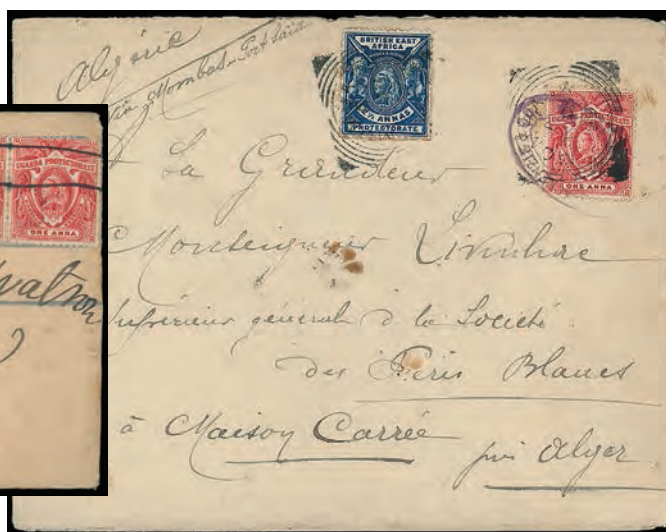 Algérie
via Mombas - Port Saïd
BRITISH EAST
AFRICA
2½ ANNAS
PROTECTORATE
UGANDA PROTECTORATE
ONE ANNA
ONE ANNA
Sa Grandeur
Monseigneur Livinhac
Supérieur général de la Société
des Pères Blancs
à Maison Carrée
près Alger